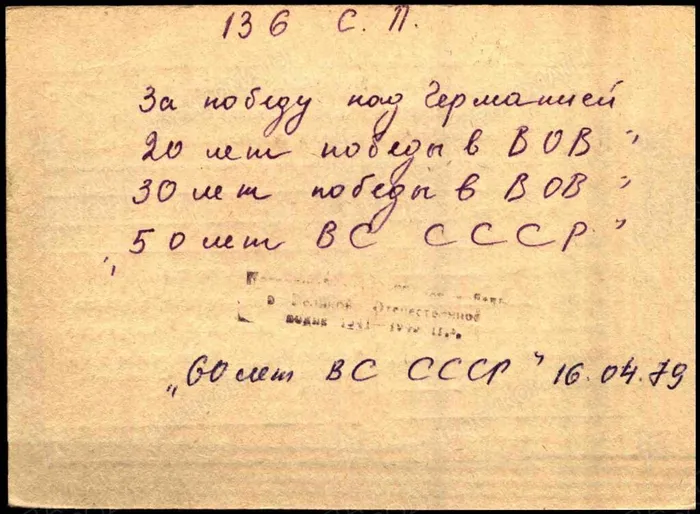 136 С. П.
За победу над Германией
20 лет победы в ВОВ"
30 лет победы в ВОВ"
„50 лет ВС СССР"
в Великой Отечественной
войне 1941—
„60 лет ВС СССР" 16.04.79